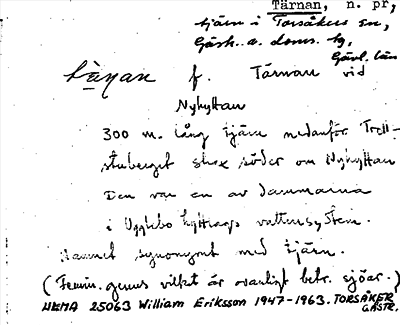 Tärnan, n. pr,
tjärn i Torsåkers sn,
Gästr. ö. doms. hg,
Gävl. län
f. Tärnan vid
Nyhyttan
300 m. lång tjärn nedanför Troll-
stuberget strax söder om Nyhyttan
Den var en av dammarna
i Ugglebo hyttlags vattensystem.
Namnet synonymt med tjärn.
(Femin. genus vilket är ovanligt betr. sjöar.)
HEMA 25063 William Eriksson 1947-1963. TORSÅKER
GÄSTR.